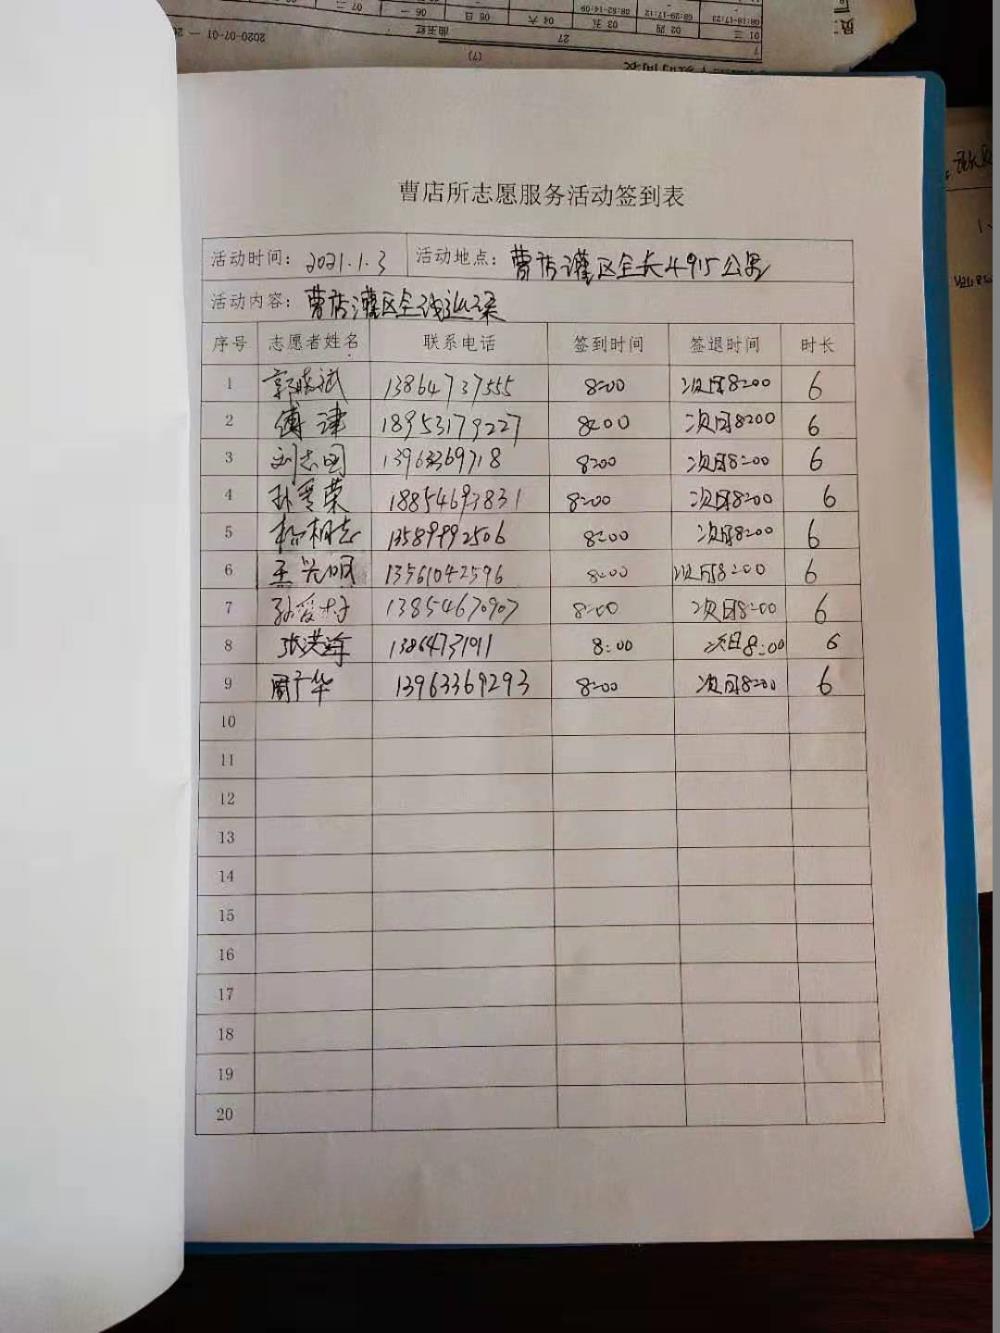 2020-07-01 一
曹店所志愿服务活动签到表
活动时间: 2021.1.3 活动地点: 曹店灌区全长49.15公里
活动内容: 曹店灌区全线巡逻
序号 志愿者姓名 联系电话 签到时间 签退时间 时长
1 13864737555 8:00 次日8:00 6
2 傅津 18953179227 8:00 次日8:00 6
3 刘志国 13963369718 8:00 次日8:00 6
4 孙爱荣 18854693831 8:00 次日8:00 6
5 杨相志 13589992506 8:00 次日8:00 6
6 王兴明 13561042596 8:00 次日8:00 6
7 孙爱村 13854670907 8:00 次日8:00 6
8 张洪海 13864731011 8:00 次日8:00 6
9 周广华 13963369293 8:00 次日8:00 6
10
11
12
13
14
15
16
17
18
19
20